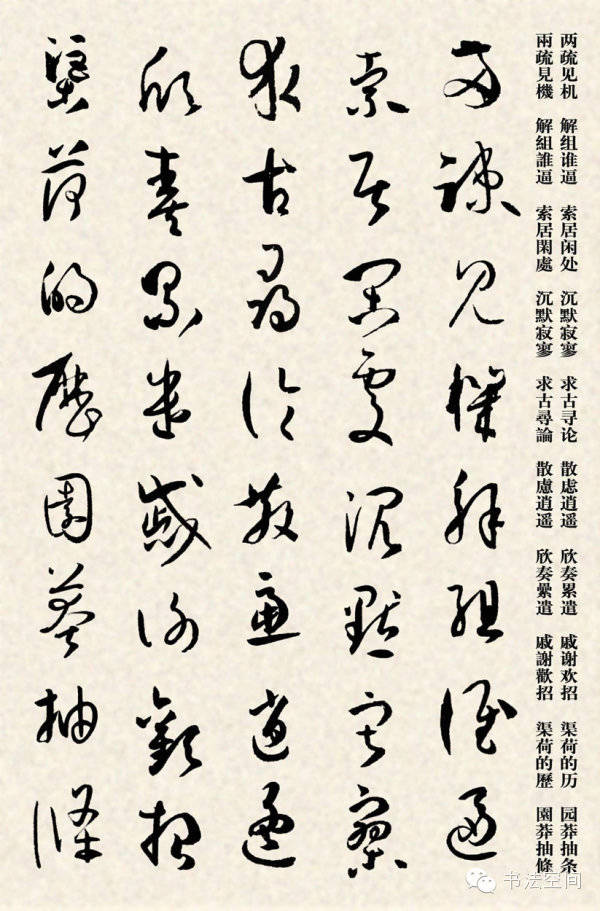 两疏见机 解组谁逼 索居闲处 沉默寂寥 求古寻论 散虑逍遥 欣奏累遣 戚谢欢招 渠荷的历 园莽抽条
兩疏見機 解組誰逼 索居閑處 沉默寂寥 求古尋論 散慮逍遥 欣奏纍遣 戚謝歡招 渠荷的歷 園莽抽條
兩疏見機解組誰逼
索居閑處沉默寂寥
求古尋論散慮逍遥
欣奏累遣慼謝歡招
渠荷的歷園莽抽條
书法空间